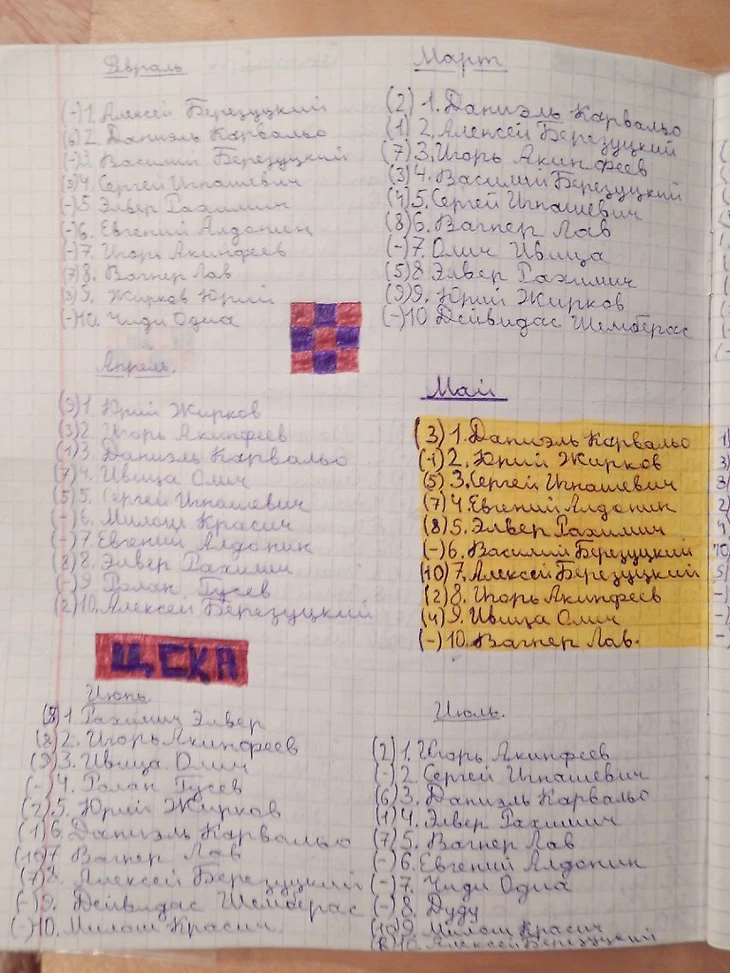 Февраль
(-) 1. Алексей Березуцкий
(6) 2. Даниэль Карвальо
(-) 3. Василий Березуцкий
(5) 4. Сергей Игнашевич
(-) 5. Элвер Рахимич
(-) 6. Евгений Алдонин
(-) 7. Игорь Акинфеев
(7) 8. Вагнер Лав
(3) 9. Жирков Юрий
(-) 10. Чиди Одиа
Март
(2) 1. Даниэль Карвальо
(1) 2. Алексей Березуцкий
(7) 3. Игорь Акинфеев
(3) 4. Василий Березуцкий
(4) 5. Сергей Игнашевич
(8) 6. Вагнер Лав
(-) 7. Олич Ивица
(5) 8 Элвер Рахимич
(9) 9. Юрий Жирков
(-) 10 Дейвидас Шемберас
Апрель.
(9) 1. Юрий Жирков
(3) 2. Игорь Акинфеев
(1) 3. Даниэль Карвальо
(7) 4. Ивица Олич
(5) 5. Сергей Игнашевич
(-) 6. Милош Красич
(-) 7. Евгений Алдонин
(8) 8. Элвер Рахимич
(-) 9 Ролан Гусев
(2) 10. Алексей Березуцкий
Май
(3) 1. Даниэль Карвальо
(1) 2. Юрий Жирков
(5) 3. Сергей Игнашевич
(7) 4. Евгений Алдонин
(8) 5. Элвер Рахимич
(-) 6. Василий Березуцкий
(10) 7. Алексей Березуцкий
(2) 8. Игорь Акинфеев
(4) 9. Ивица Олич
(-) 10. Вагнер Лав.
ЦСКА
Июнь
1. Рахимич Элвер
(8) 2. Игорь Акинфеев
(9) 3. Ивица Олич
(-) 4. Ролан Гусев
(2) 5. Юрий Жирков
(1) 6. Даниэль Карвальо
(10) 7 Вагнер Лав
(7) 8. Алексей Березуцкий
(-) 9. Дейвидас Шемберас
(-) 10. Милош Красич
Июль.
(2) 1. Игорь Акинфеев
(-) 2 Сергей Игнашевич
(6) 3. Даниэль Карвальо
(1) 4. Элвер Рахимич
(7) 5. Вагнер Лав
(-) 6. Евгений Алдонин
(-) 7. Чиди Одиа
(-) 8. Дуду
(10) 9. Милош Красич
(8) 10. Алексей Березуцкий